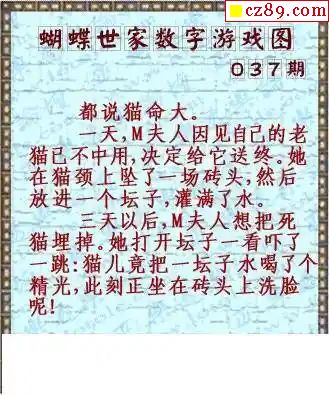 cz89.com
蝴蝶世家数字游戏图
037期
都说猫命大。
一天,M夫人因见自己的老
猫已不中用,决定给它送终。她
在猫颈上坠了一场砖头,然后
放进一个坛子,灌满了水。
三天以后,M夫人想把死
猫埋掉。她打开坛子一看吓了
一跳:猫儿竟把一坛子水喝了个
精光,此刻正坐在砖头上洗脸
呢!